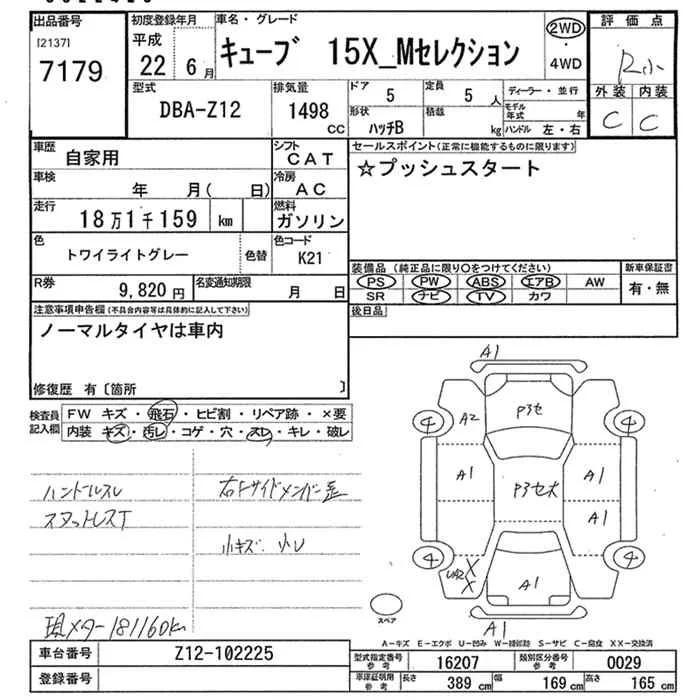 出品番号 初度登録年月 車名・グレード 評価点
[2137] 平成 キューブ 15X_Mセレクション 2WD
7179 22 6月 ・4WD R小
型式 排気量 ドア 定員 ディーラー・並行 外装 内装
DBA-Z12 1498 CC 5 5人 モデル年式 年 C C
形状 積載 ハッチB kg ハンドル 左・右
車歴 自家用 シフト CAT セールスポイント(正常に機能するものに限ります)
車検 年 月( 日) 冷房 AC ☆プッシュスタート
走行 18万1千159 km 燃料 ガソリン
色 トワイライトグレー 色替 色コード K21
装備品 (純正品に限り○をつけてください) 新車保証書
PS PW ABS エアB AW 有・無
SR ナビ TV カワ
R券 9,820円 名変通知期限 月 日
後日品
注意事項申告欄(不具合内容等は具体的に記入して下さい)
ノーマルタイヤは車内
修復歴 有〔箇所 〕
検査員記入欄 FW キズ・飛石・ヒビ割・リペア跡・×要
内装 キズ・汚レ・コゲ・穴・スレ・キレ・破レ
ハンドルスレ 右Fサイドメンバー歪
スタットレスT
小キズ・小レ
現メター181160km
A1
A2 P3セ
4 4
A1 P3セ大 A1
A1
4 4
UA2 X X A1
スペア A1
A-キズ E-エクボ U-凹み W-補修跡 S-サビ C-腐食 XX-交換済
車台番号 Z12-102225
登録番号
型式指定番号 参考 16207 類別区分番号 参考 0029
車庫証明用 参考 長さ 389 cm 幅 169 cm 高さ 165 cm